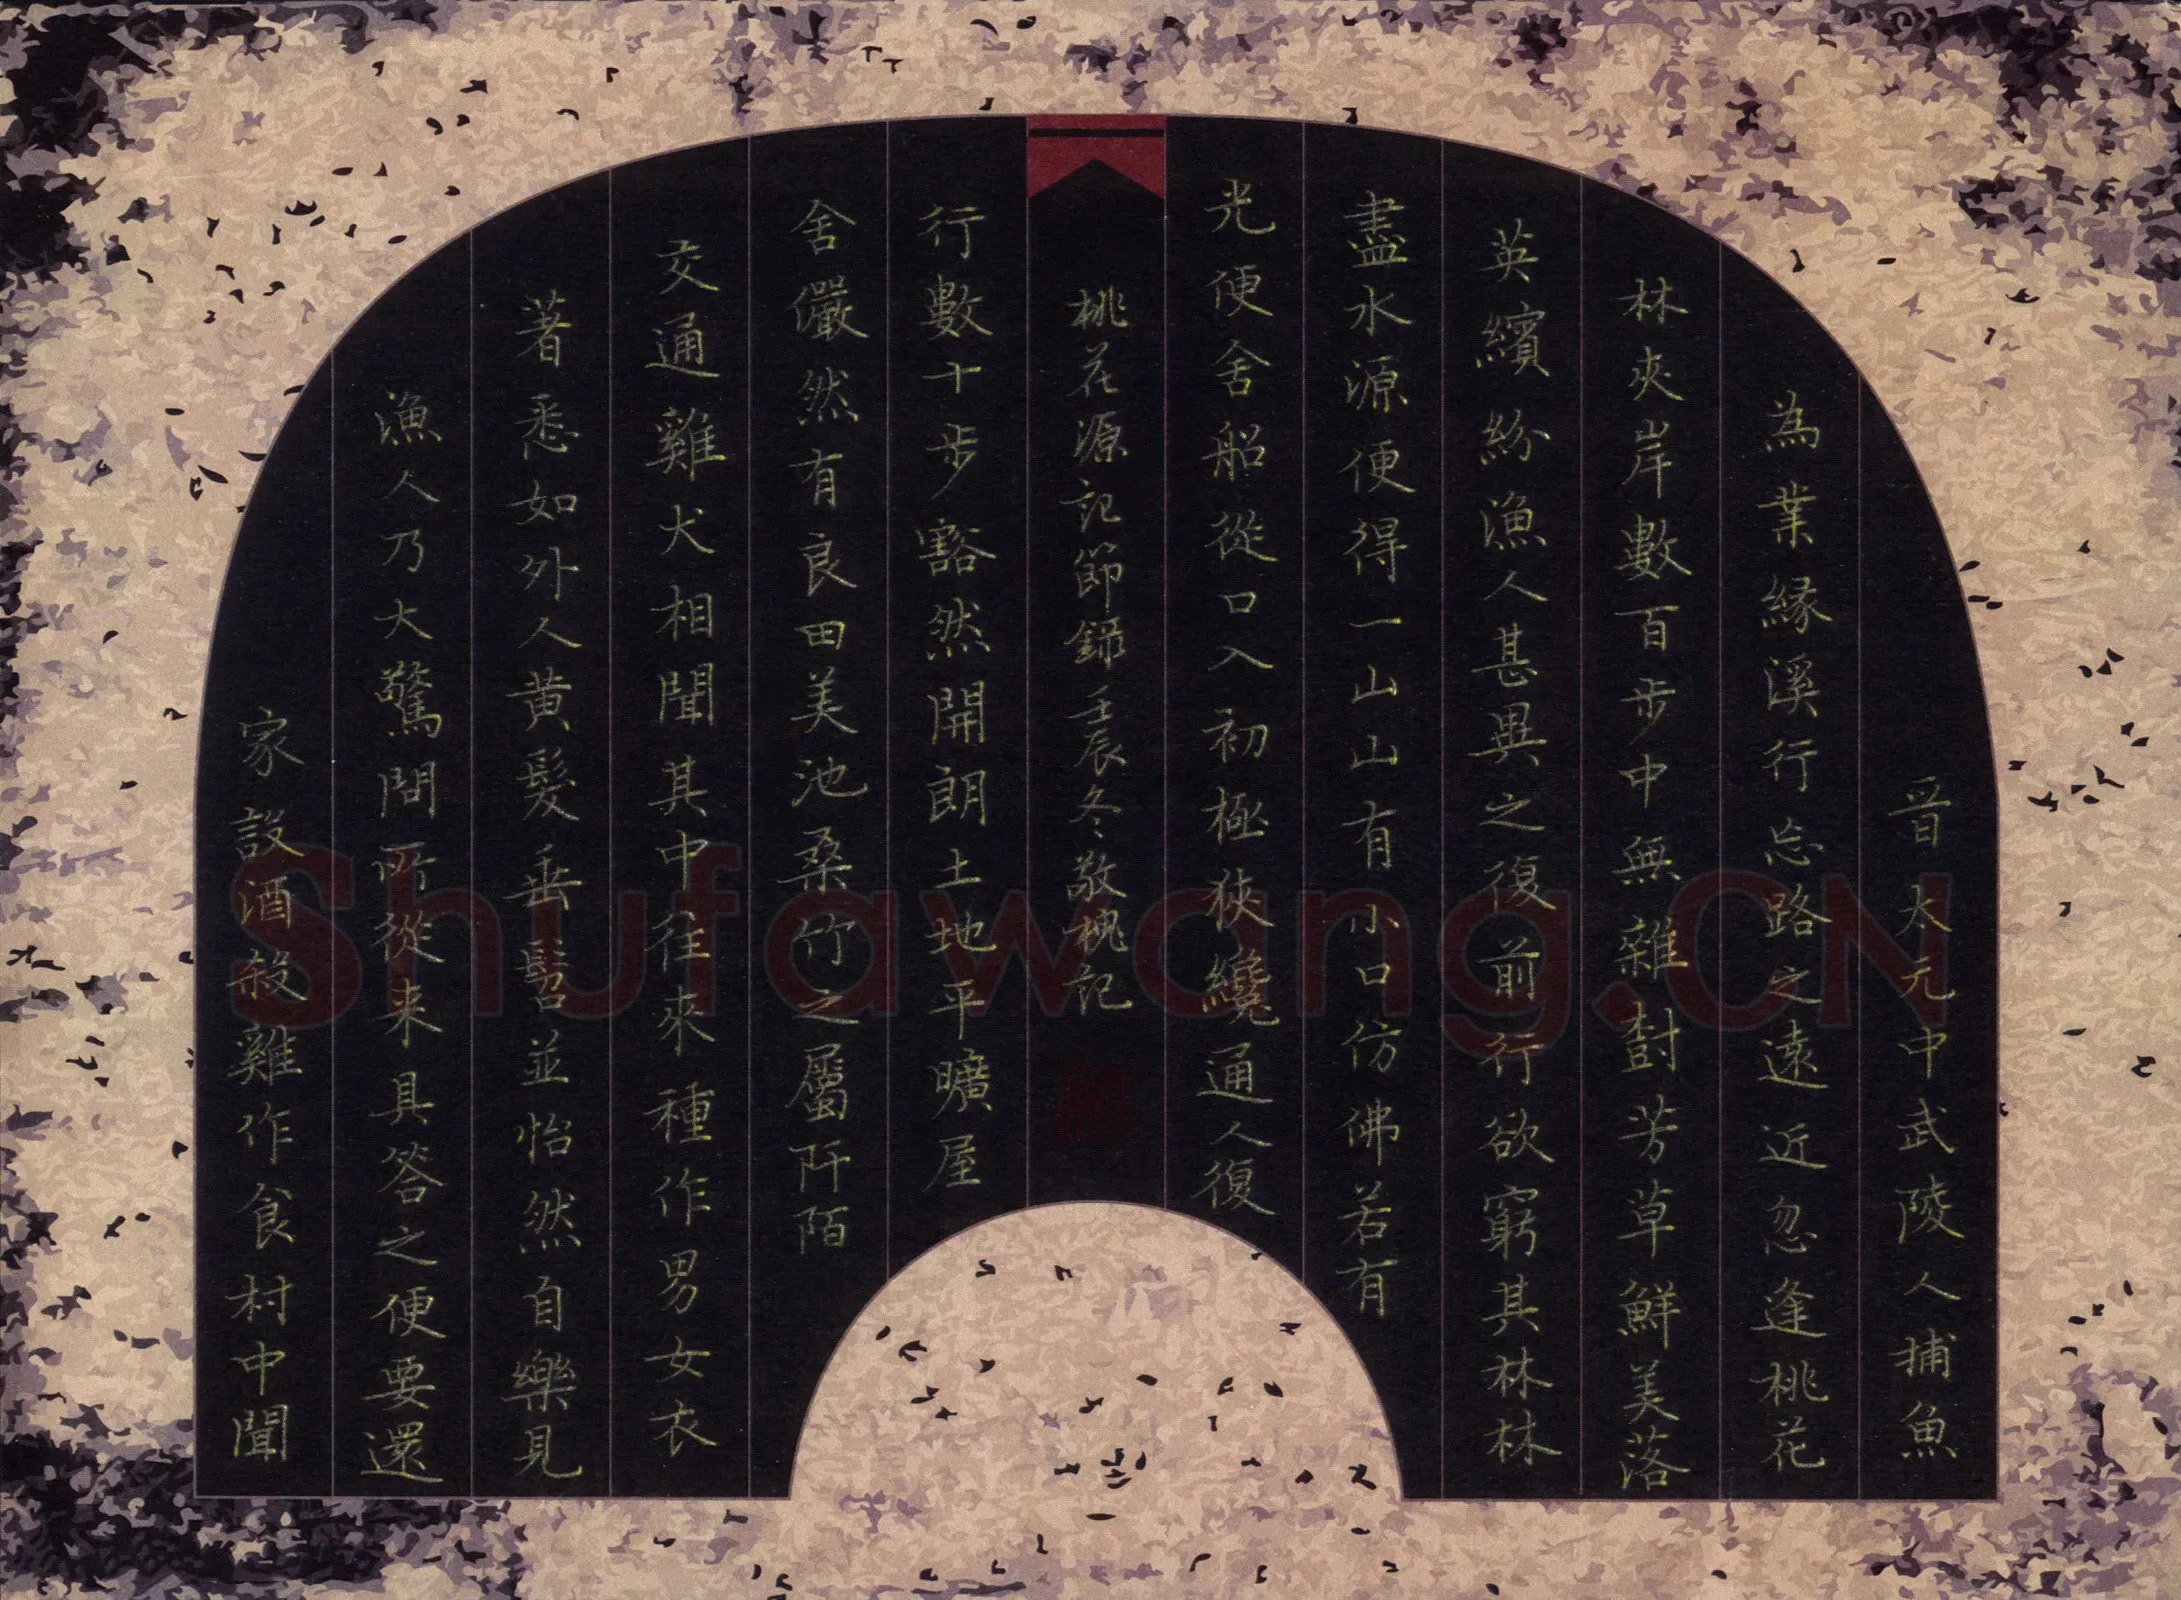 晉太元中武陵人捕魚
為業緣溪行忘路之遠近忽逢桃花
林夾岸數百步中無雜樹芳草鮮美落
英繽紛漁人甚異之復前行欲窮其林林
盡水源便得一山山有小口仿佛若有
光便舍船從口入初極狹纔通人復
桃花源記節錄壬辰冬敬槐記
行數十步豁然開朗土地平曠屋
舍儼然有良田美池桑竹之屬阡陌
交通雞犬相聞其中往來種作男女衣
著悉如外人黃髮垂髫並怡然自樂見
漁人乃大驚問所從来具答之便要還
家設酒殺雞作食村中聞
Shufawang.CN